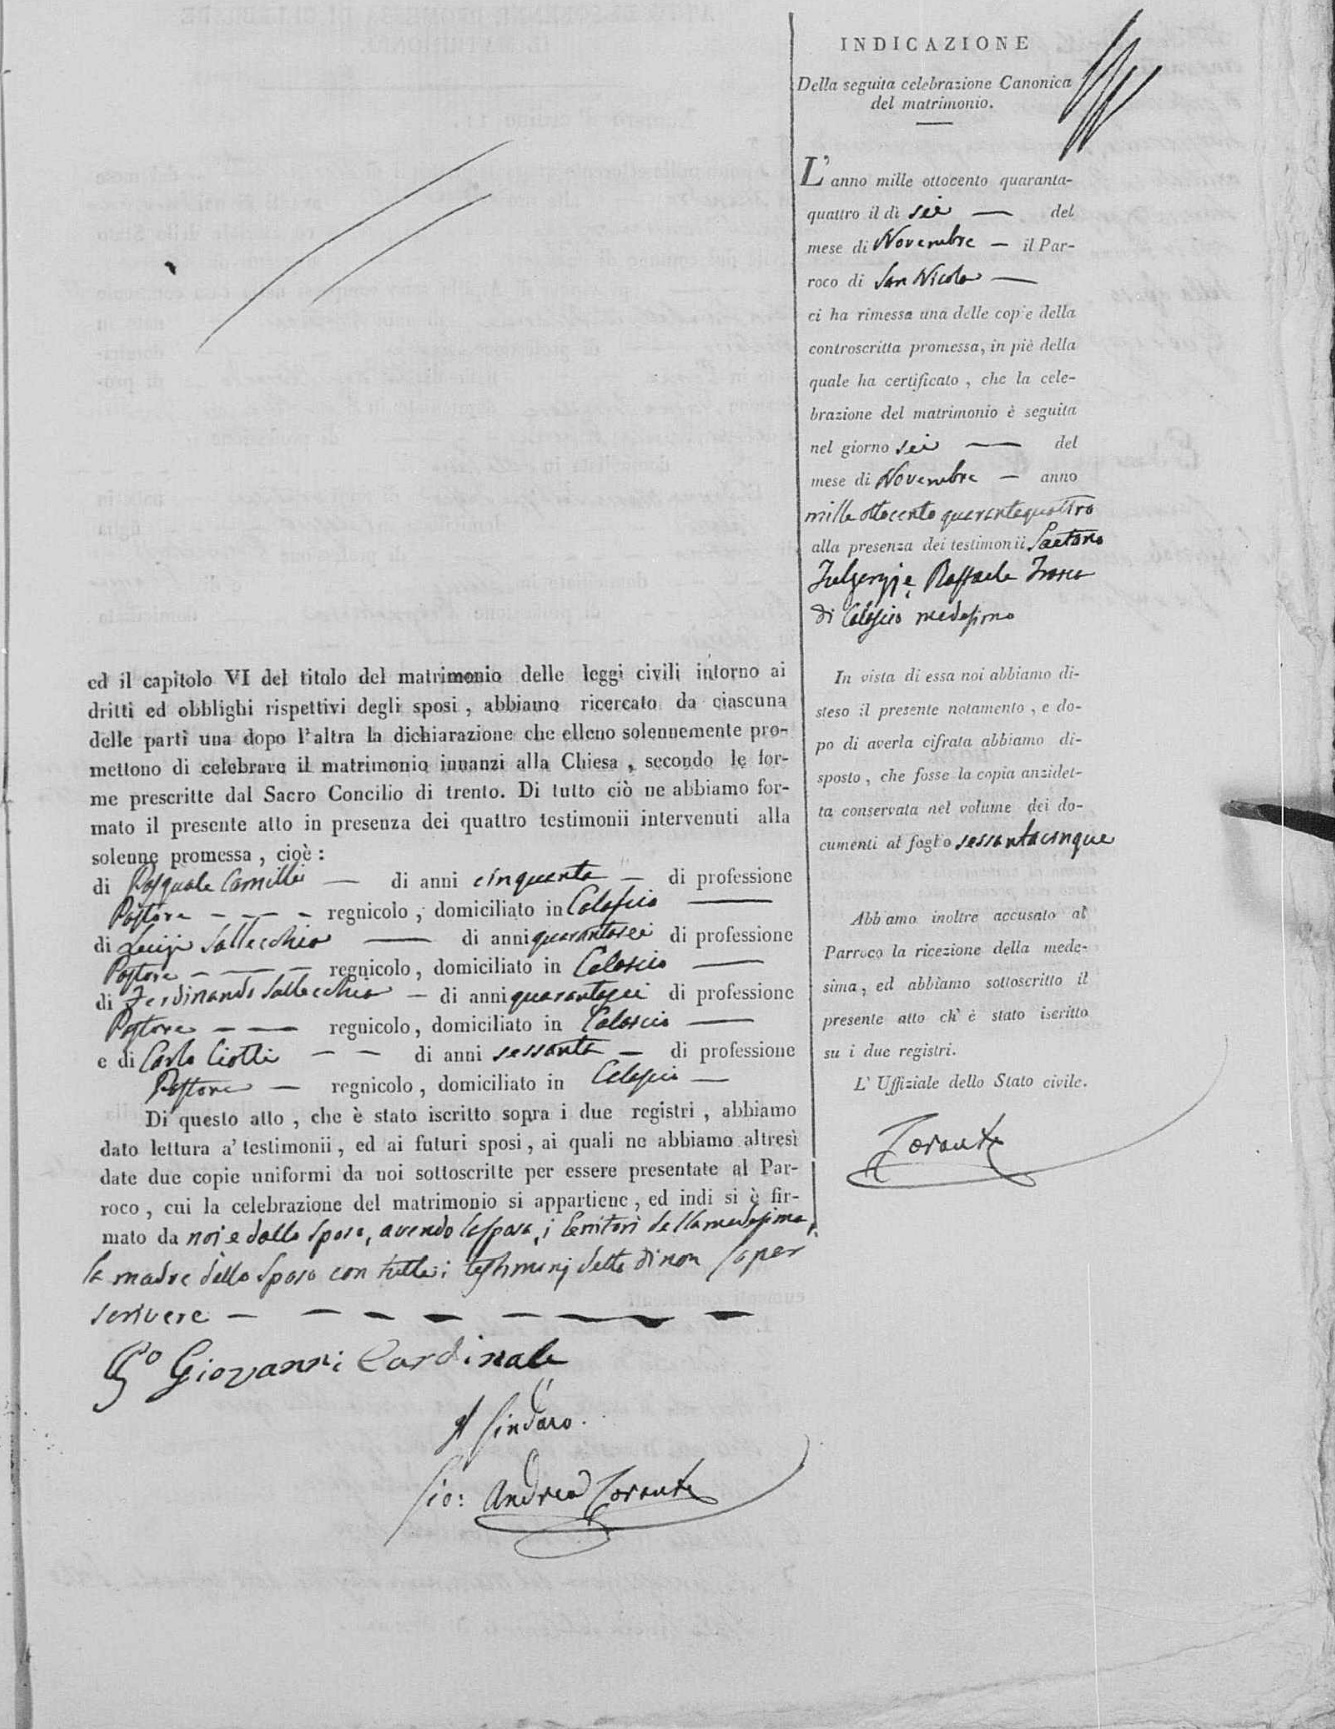 INDICAZIONE
Della seguita celebrazione Canonica
del matrimonio.
L'anno mille ottocento quaranta-
quattro il dì sei — del
mese di Novembre — il Par-
roco di San Nicola —
ci ha rimessa una delle copie della
controscritta promessa, in piè della
quale ha certificato, che la cele-
brazione del matrimonio è seguita
nel giorno sei — del
mese di Novembre — anno
mille ottocento quarantaquattro
alla presenza dei testimonii Gaetano
Fulgenzj e Raffaele
di Calascio medesimo
In vista di essa noi abbiamo di-
steso il presente notamento, e do-
po di averla cifrata abbiamo di-
sposto, che fosse la copia anzidet-
ta conservata nel volume dei do-
cumenti al foglio sessantacinque
Abbiamo inoltre accusato al
Parroco la ricezione della mede-
sima, ed abbiamo sottoscritto il
presente atto ch' è stato iscritto
su i due registri.
L' Uffiziale dello Stato civile.
Torante
ed il capitolo VI del titolo del matrimonio delle leggi civili intorno ai
dritti ed obblighi rispettivi degli sposi, abbiamo ricercato da ciascuna
delle parti una dopo l'altra la dichiarazione che elleno solennemente pro-
mettono di celebrare il matrimonio innanzi alla Chiesa, secondo le for-
me prescritte dal Sacro Concilio di trento. Di tutto ciò ne abbiamo for-
mato il presente atto in presenza dei quattro testimonii intervenuti alla
solenne promessa, cioè:
di Pasquale Camilli — di anni cinquanta — di professione
Pastore - - - - regnicolo, domiciliato in Calascio —
di Luigi Saltecchia — di anni quarantasei di professione
Pastore - - - - regnicolo, domiciliato in Calascio —
di Ferdinando Saltecchia - di anni quarantasei di professione
Pastore - - - regnicolo, domiciliato in Calascio —
e di Carlo Ciotti - - di anni sessanta — di professione
Pastore — regnicolo, domiciliato in Calascio —
Di questo atto, che è stato iscritto sopra i due registri, abbiamo
dato lettura a' testimonii, ed ai futuri sposi, ai quali ne abbiamo altresì
date due copie uniformi da noi sottoscritte per essere presentate al Par-
roco, cui la celebrazione del matrimonio si appartiene, ed indi si è fir-
mato da noi e dallo sposo, avendo la sposa, i Genitori della medesima,
la madre dello sposo con tutti i testimonj detto di non saper
scrivere — — — — — — — —
Giovanni Cardinale
Il Sindaco.
Gio: Andrea Torante